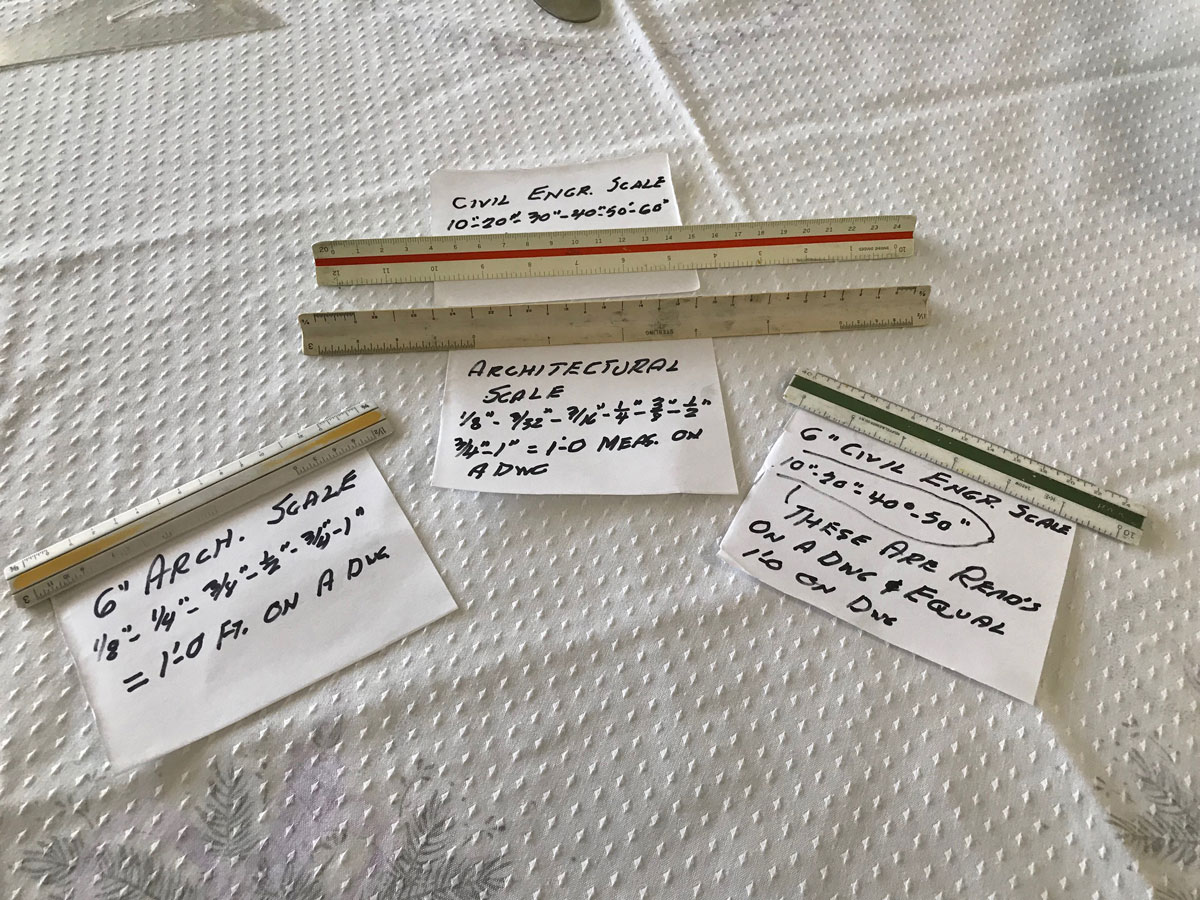 CIVIL ENGR. SCALE
10"-20"-30"-40"-50"-60"
20 0 1 2 3 4 5 6 7 8 9 10 11 12 13 14 15 16 17 18 19 20 21 22 23 24
12 11 10 9 8 7 6 5 4 3 2 1 0 10
3
STERLING
1½
ARCHITECTURAL
SCALE
1/8"-3/32"-3/16"-1/4"-3/8"-1/2"
3/4"-1" = 1'-0 MEAS. ON
A DWG
6" ARCH. SCALE
1/8"-1/4"-3/8"-1/2"-3/4"-1"
= 1'-0 FT. ON A DWG
3
6" CIVIL ENGR. SCALE
10"-20"-40"-50"
THESE ARE READ'S
ON A DWG & EQUAL
1'-0 ON DWG